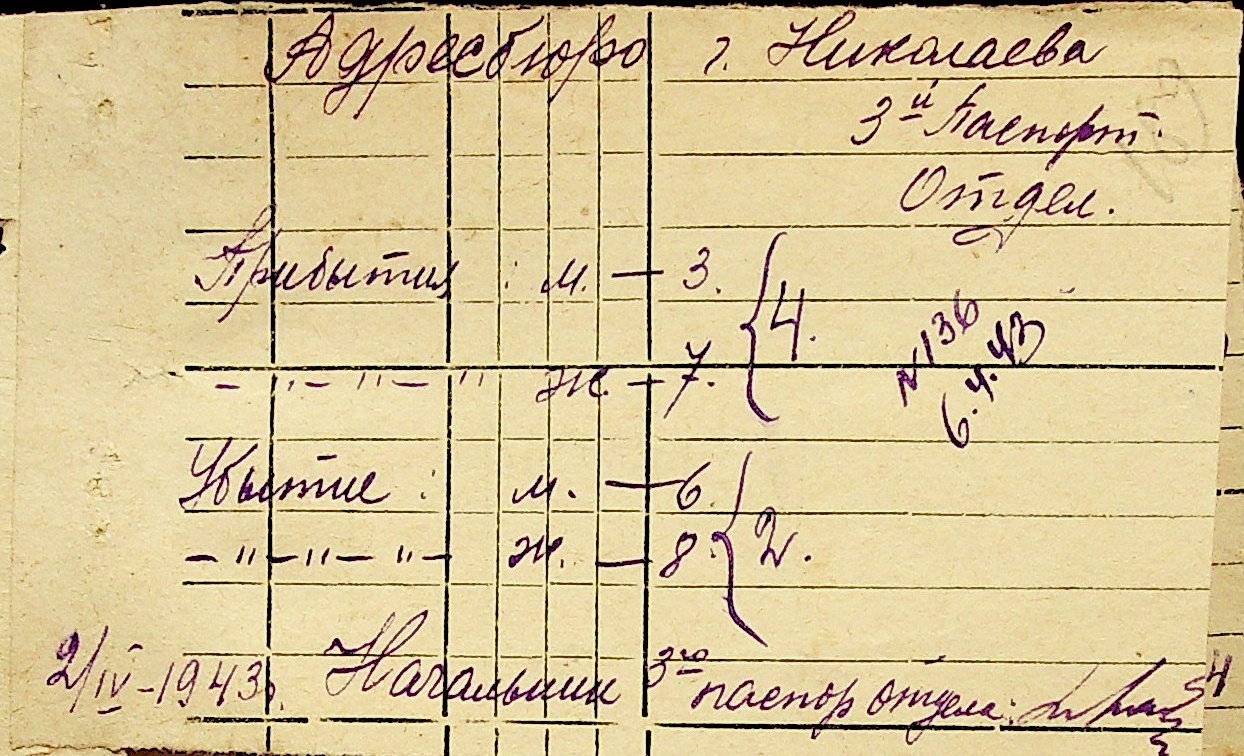 Адресбюро г. Николаева
3й Паспорт.
Отдел.
Прибытия : м. — 3.
4.
— " — " — " ж. — 7.
N 136
6.4.43
Убытие : м. — 6.
2.
— " — " — " — ж. — 8.
2/IV-1943г. Начальник 3го паспор отдела:
54